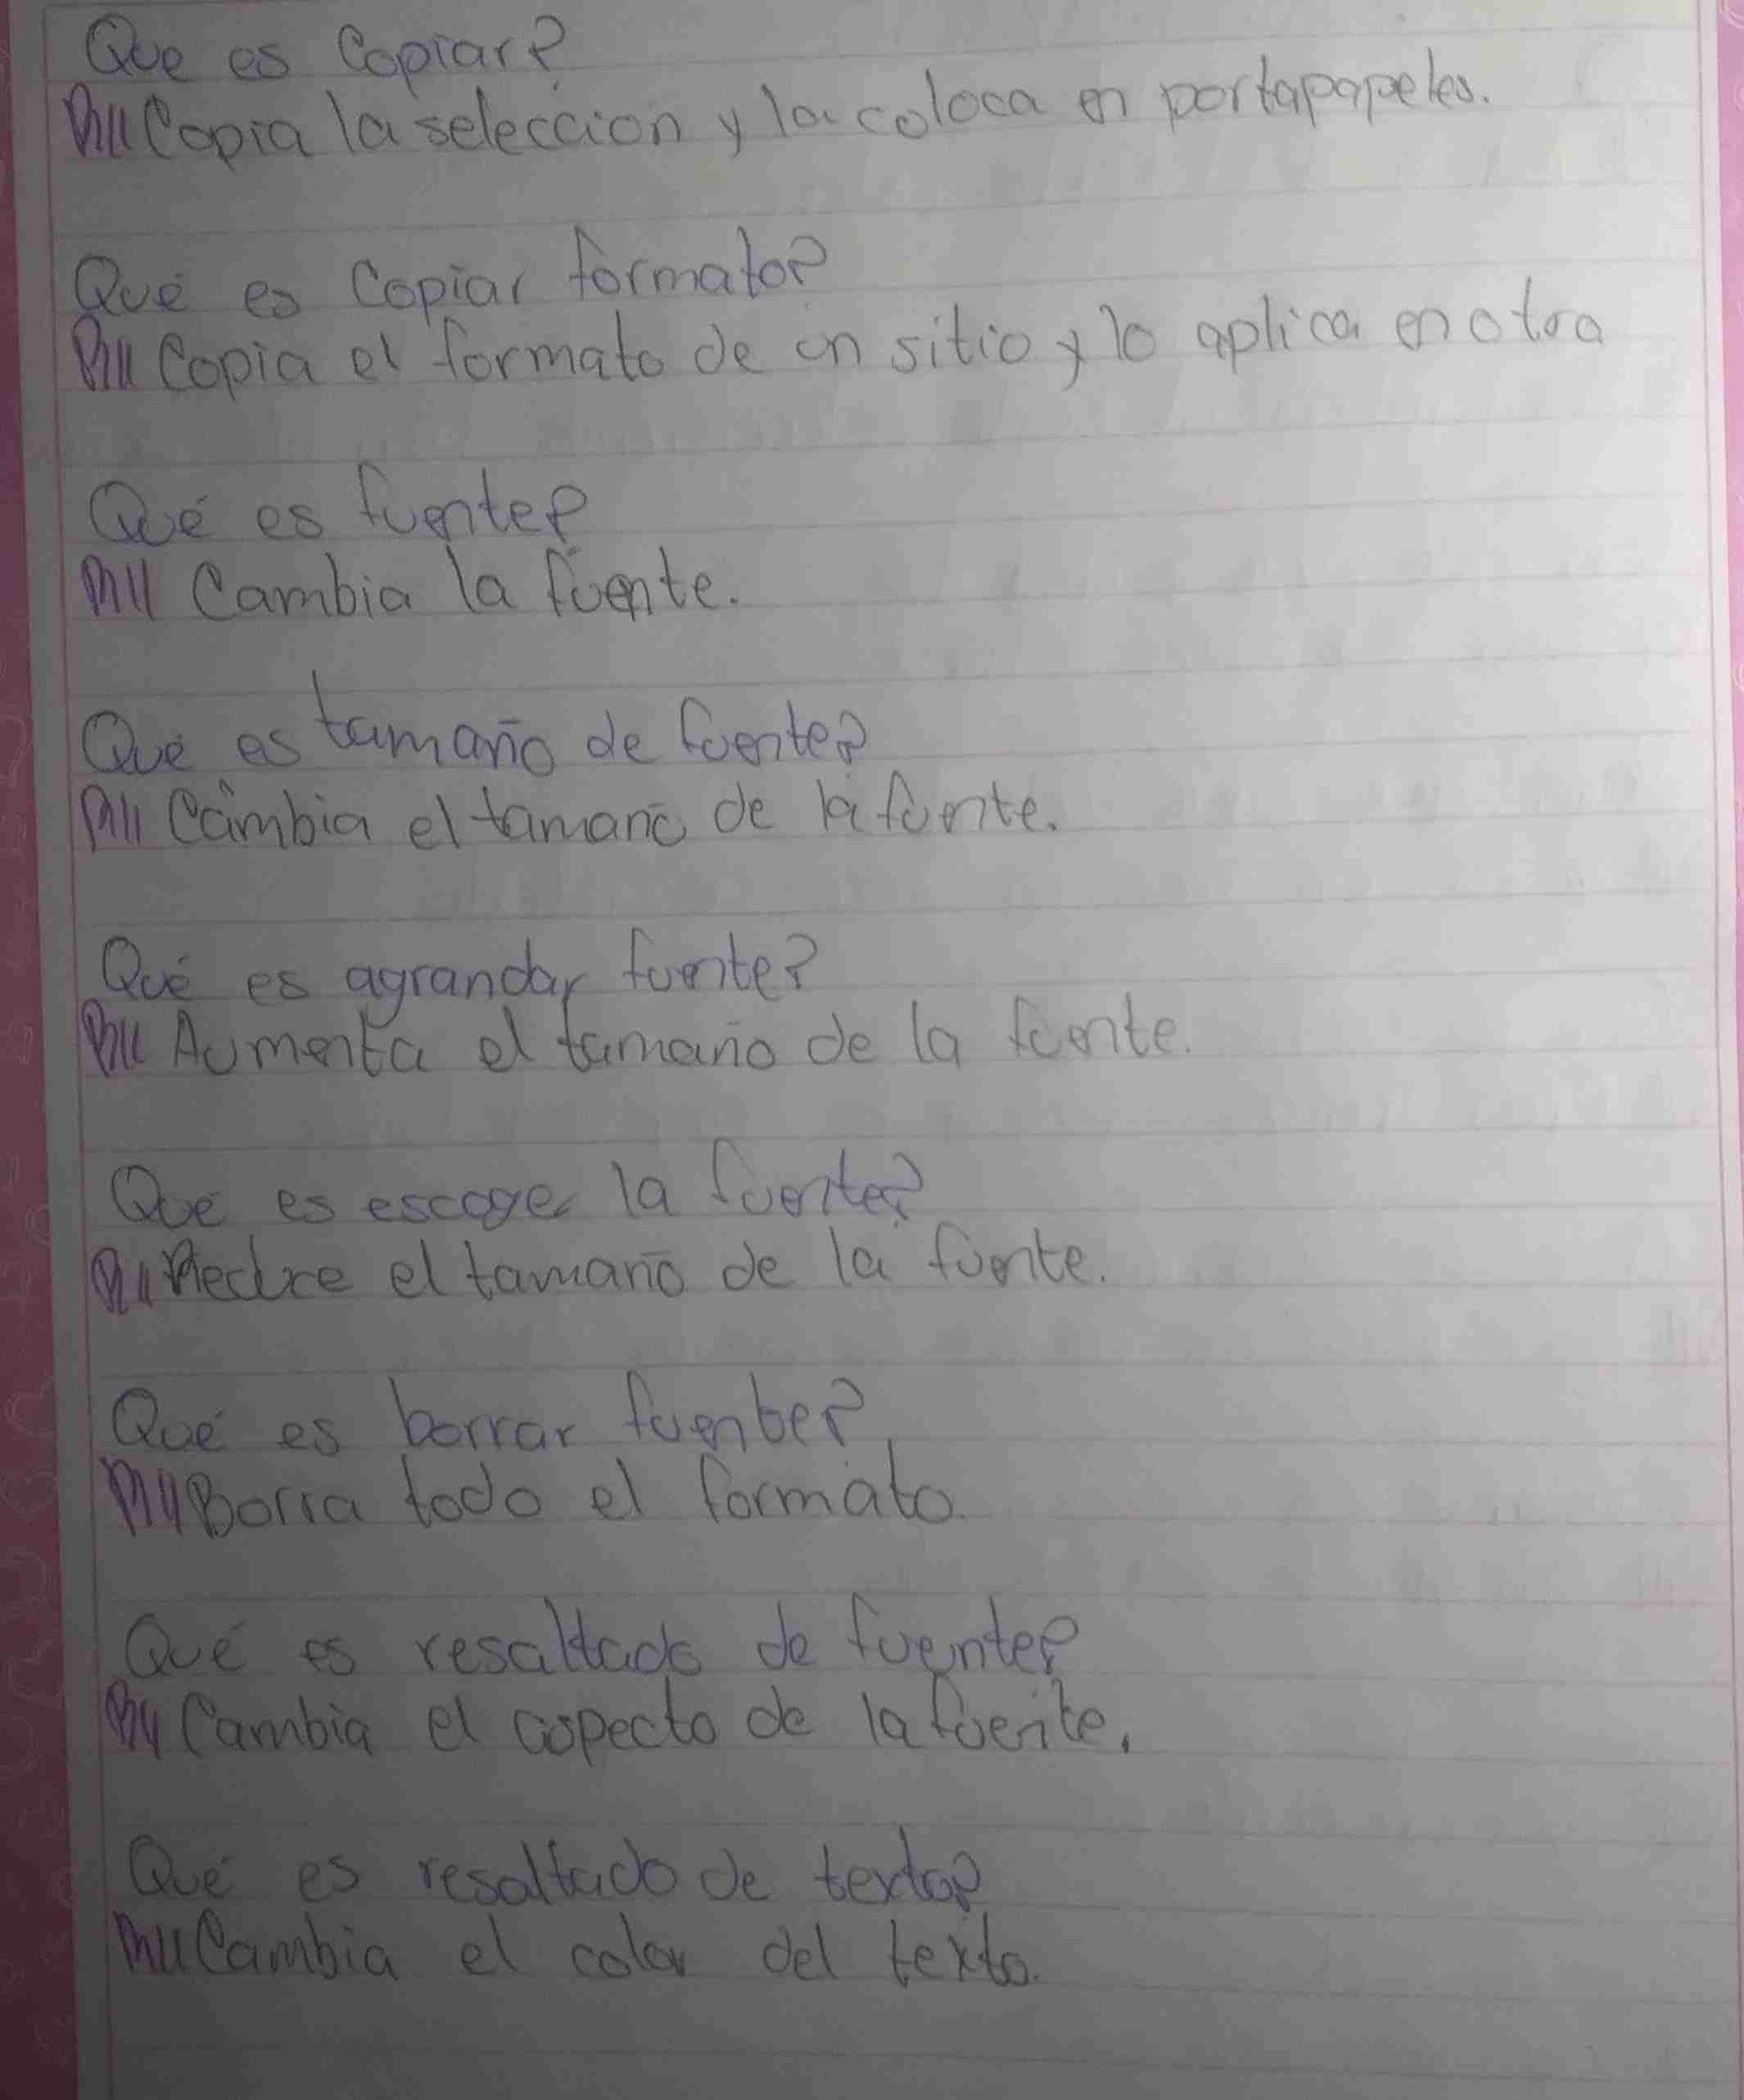 Que es Copiar?
R// Copia la seleccion y la coloca en portapapeles.
Qué es Copiar formato?
R// Copia el formato de un sitio y lo aplica en otra
Qué es fuente?
R// Cambia la fuente.
Qué es tamaño de fuente?
R// Cambia el tamaño de la fuente.
Qué es agrandar fuente?
R// Aumenta el tamaño de la fuente.
Qué es escoger la fuente?
R// Reduce el tamaño de la fuente.
Qué es borrar fuente?
R// Borra todo el formato.
Qué es resaltado de fuente?
R// Cambia el aspecto de la fuente.
Qué es resaltado de texto?
R// Cambia el color del texto.